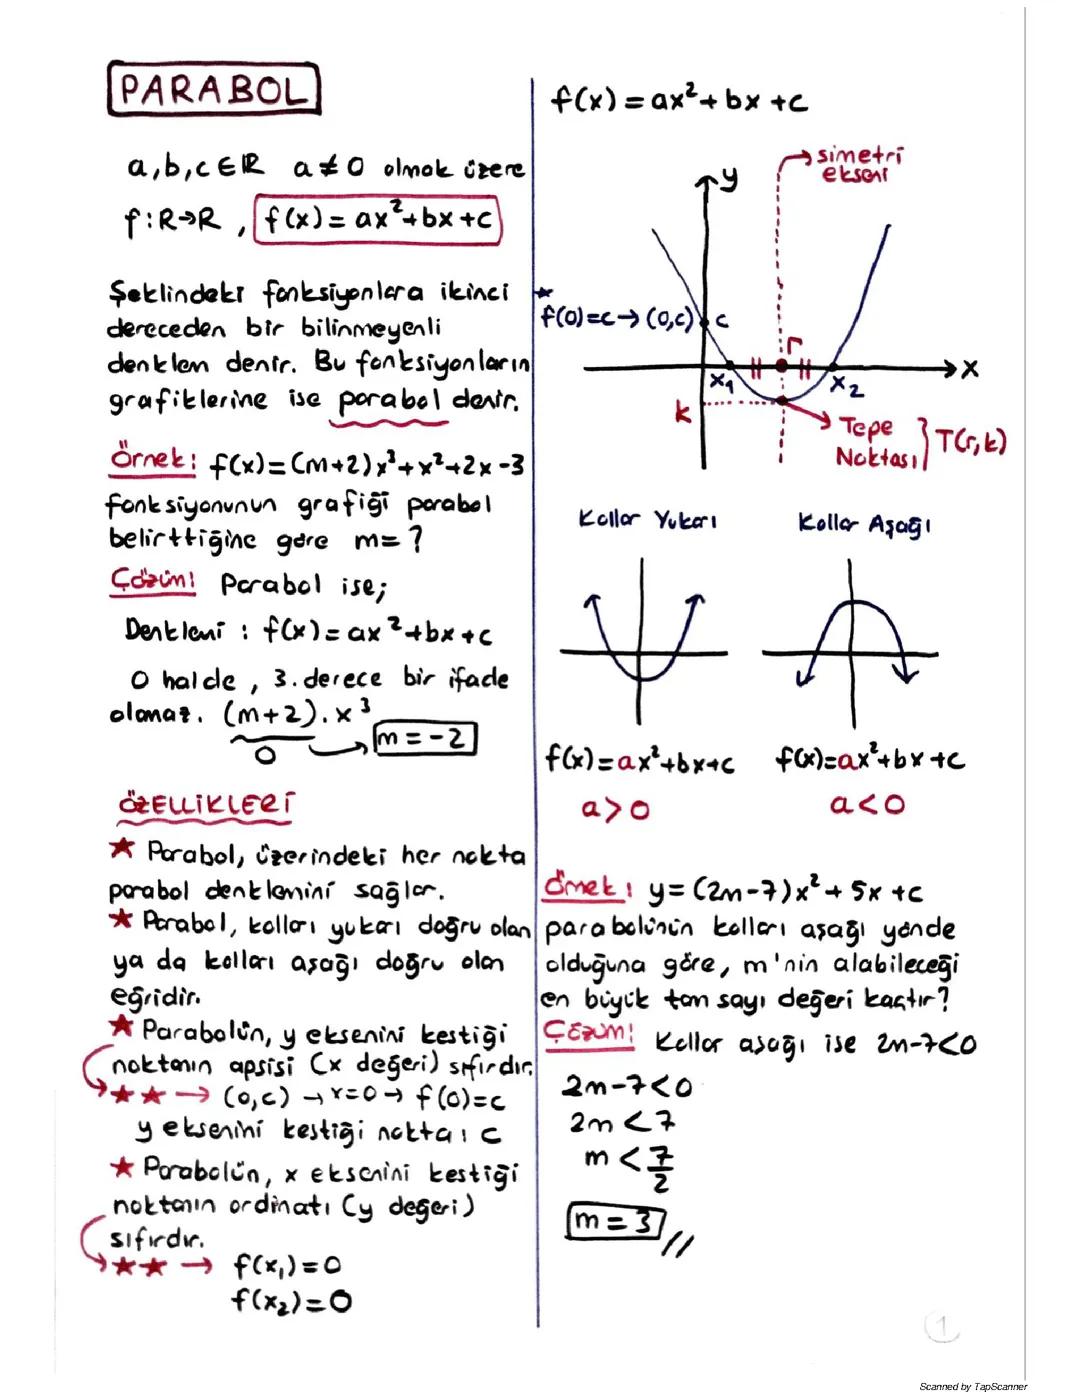 PARABOL
a,b,c ∈ R a ≠ 0 olmak üzere
f:R→R , f(x) = ax²+bx+c
Şeklindeki fonksiyonlara ikinci
dereceden bir bilinmeyenli
denklem denir. Bu fonksiyonların
grafiklerine ise parabol denir.
Örnek: f(x)=(m+2)x³+x²+2x-3
fonksiyonunun grafiği parabol
belirttiğine göre m=?
Çözüm: Parabol ise;
Denklemi : f(x)=ax²+bx+c
O halde , 3.derece bir ifade
olamaz. (m+2).x³
0 → m=-2
ÖZELLİKLERİ
★ Parabol, üzerindeki her nokta
parabol denklemini sağlar.
★ Parabol, kolları yukarı doğru olan
ya da kolları aşağı doğru olan
eğridir.
★ Parabolün, y eksenini kestiği
noktanın apsisi (x değeri) sıfırdır.
★★→ (0,c) → x=0 → f(0)=c
y eksenini kestiği nokta: c
★ Parabolün, x eksenini kestiği
noktanın ordinatı (y değeri)
sıfırdır.
★★→ f(x₁)=0
f(x₂)=0
f(x) = ax²+bx+c
simetri
ekseni
y
★
f(0)=c→(0,c) c
r
x₁ x₂ x
k
Tepe
Noktası } T(r,k)
Kollar Yukarı Kollar Aşağı
f(x)=ax²+bx+c f(x)=ax²+bx+c
a>0 a<0
Örnek: y=(2m-7)x²+5x+c
parabolünün kolları aşağı yönde
olduğuna göre, m'nin alabileceği
en büyük tam sayı değeri kaçtır?
Çözüm: Kollar aşağı ise 2m-7<0
2m-7<0
2m<7
m<7/2
m=3//
1
Scanned by TapScanner